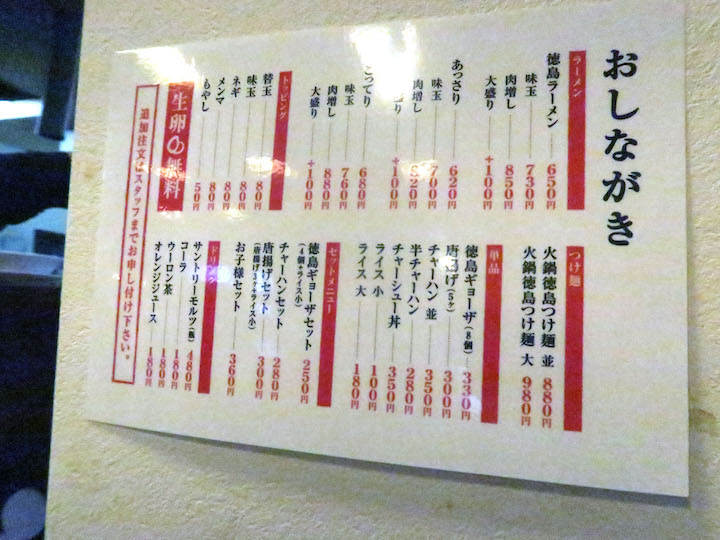 おしながき
ラーメン
徳島ラーメン 650円
味玉 730円
肉増し 850円
大盛り +100円
あっさり 620円
味玉 700円
肉増し 820円
大盛り +100円
こってり 680円
味玉 760円
肉増し 880円
大盛り +100円
トッピング
替玉 80円
味玉 80円
ネギ 80円
メンマ 80円
もやし 50円
生卵 無料
つけ麺
火鍋徳島つけ麺 並 880円
火鍋徳島つけ麺 大 980円
単品
徳島ギョーザ(8個) 330円
唐揚げ(5ヶ) 300円
チャーハン 並 350円
半チャーハン 280円
チャーシュー丼 350円
ライス 小 100円
ライス 大 180円
セットメニュー
徳島ギョーザセット 250円
(4個+ライス小)
チャーハンセット 280円
唐揚げセット 300円
(唐揚げ3ヶ+ライス小)
お子様セット 360円
ドリンク
サントリーモルツ(瓶) 480円
コーラ 180円
ウーロン茶 180円
オレンジジュース 180円
追加注文はスタッフまでお申し付け下さい。